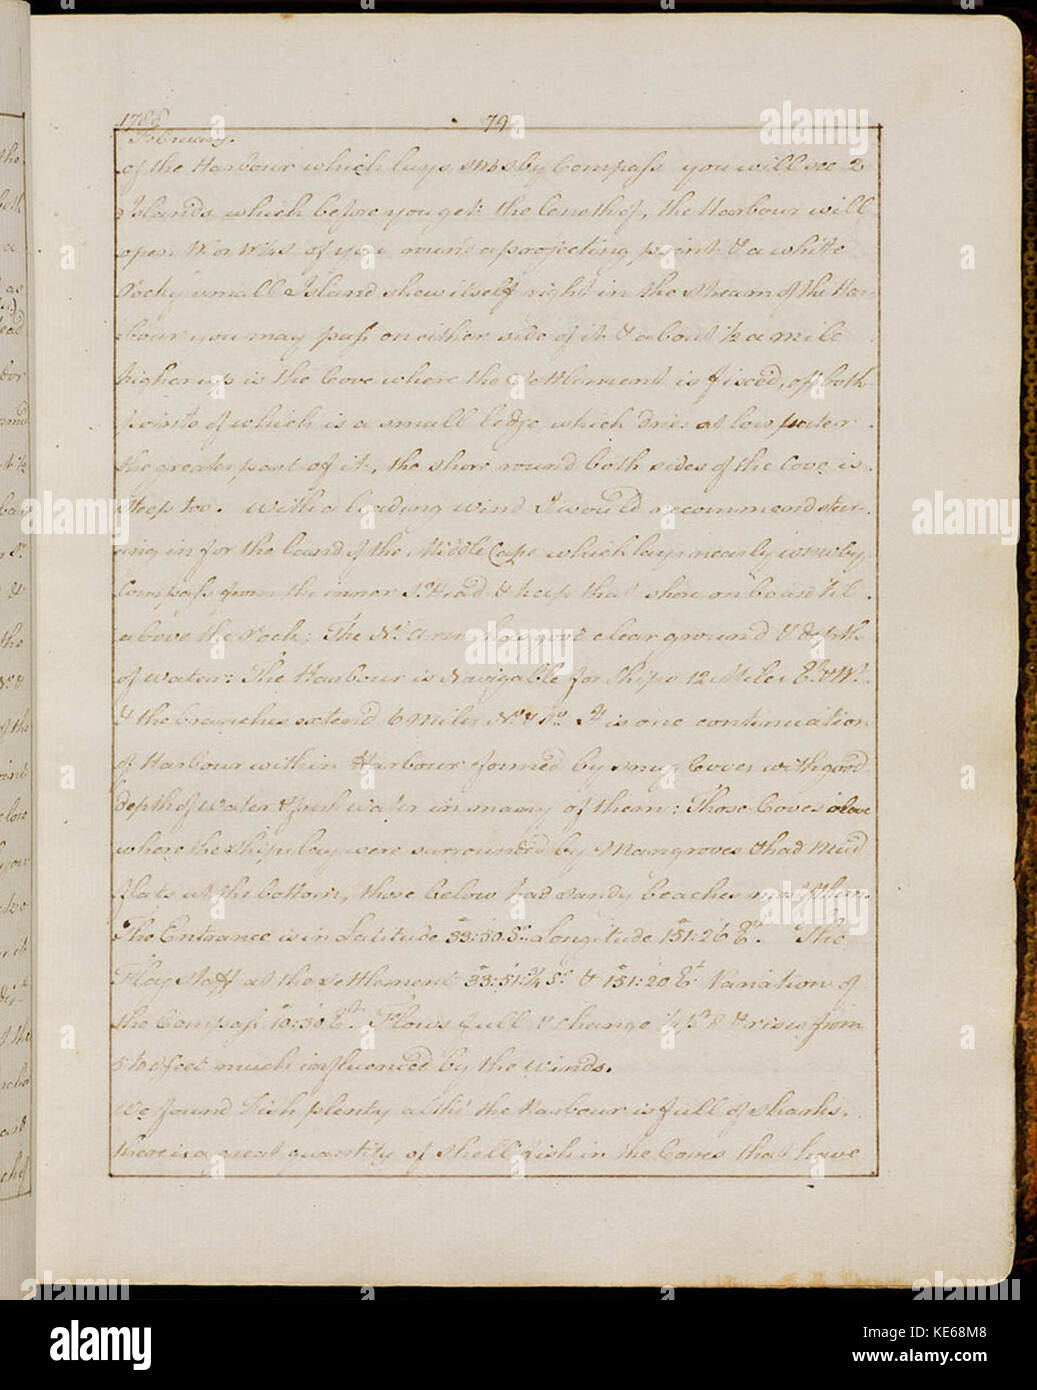 1788
79
February.
of the Harbour which lays SWbS by Compass you will see 2
Islands which before you get the length of, the Harbour will
open W or WbS of you round a projecting point & a white
Rocky small Island shew itself right in the stream of the Har-
bour you may pass on either side of it & about ½ a mile
higher up is the Cove where the Settlement is fixed, off both
points of which is a small ledge which dries at low water
the greater part of it, the shore round both sides of the Cove is
steep too. With a leading wind I would recommend steer-
ing in for the land of the Middle Cape which lays nearly by
Compass from the inner So. Head & keep that shore onboard 'til
above the Rock; The No. Arm has good clear ground & depth
of water: The Harbour is Navigable for Ships 12 Miles Et. & Wt.
& the branches extend 6 Miles No. & So. It is one continuation
of Harbour within Harbour formed by snug Coves with good
depth of Water & fresh water in many of them; Those Coves above
where the ships lay were surrounded by Mangroves & had Mud
flats at the bottom, those below had sandy beaches most of them.
The Entrance is in Latitude 33:50 So. Longitude 151:26 Et. The
Flag staff at the Settlement 33:51¼ So. & 151:20 Et. Variation of
the Compass 10:30 Et. Flows full & change ½ pt. 8 & rises from
5 to feet much influenced by the winds.
We found Fish plenty altho' the Harbour is full of Sharks,
there is a great quantity of Shell fish in the Coves that have
alamy
a
Image ID: KE68M8
www.alamy.com